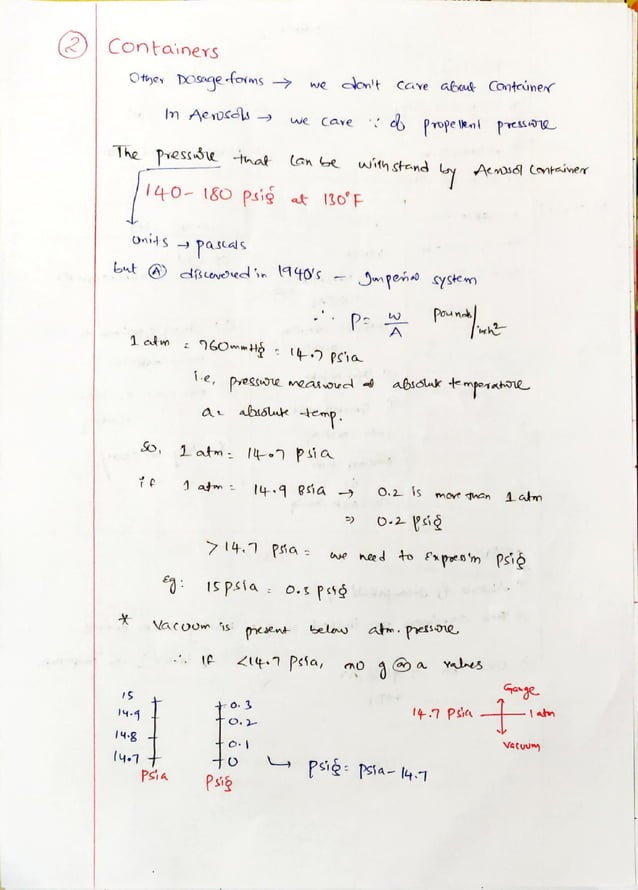 2 Containers
Other Dosage-forms → we don't care about Container
In Aerosols → we care ∵ of propellent pressure
The pressure that can be withstand by Aerosol Container
140 - 180 psig at 130°F
Units → pascals
but Ⓐ discovered in 1940's - Imperial system
∴ P = W/A pounds/inch²
1 atm = 760mmHg = 14.7 psia
i.e, pressure measured at absolute temperature
a = absolute temp.
So, 1 atm = 14.7 psia
if 1 atm = 14.9 psia → 0.2 is more than 1 atm
⇒ 0.2 psig
> 14.7 psia = we need to express in psig
Eg: 15 psia = 0.3 psig
* Vacuum is present below atm. pressure
∴ If <14.7 psia, no g or a values
15
14.9
14.8
14.7
Psia
0.3
0.2
0.1
0
Psig
↳ psig = psia - 14.7
Gauge
14.7 Psia 1 atm
Vacuum